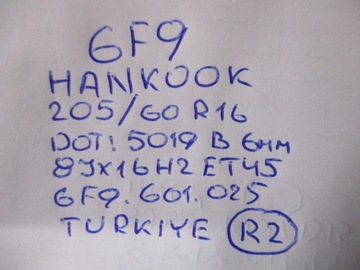 6F9
HANKOOK
205/60 R16
DOT: 5019 B 6mm
8Jx16H2 ET45
6F9.601.025
TURKIYE R2